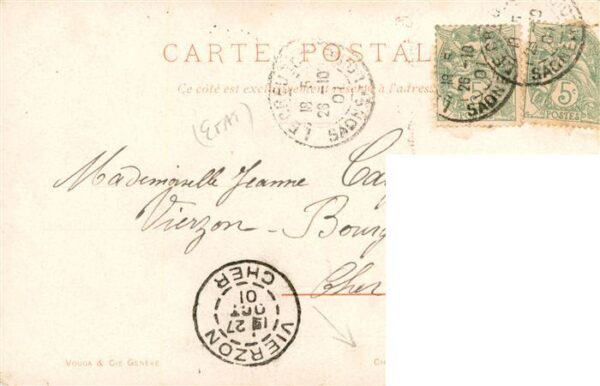 CARTE POSTAL
Ce côté est exclusivement réservé à l'adres
LE CREUSOT
18 5
26 -10
01
SAONE-ET-L
18 5
26 -10
SAONE
5c
POSTES
(ETAT)
Mademoiselle Jeanne
Vierzon - Bourg
Cher
VIERZON
27
OCT
01
CHER
VOUGA & CIE GENÈVE